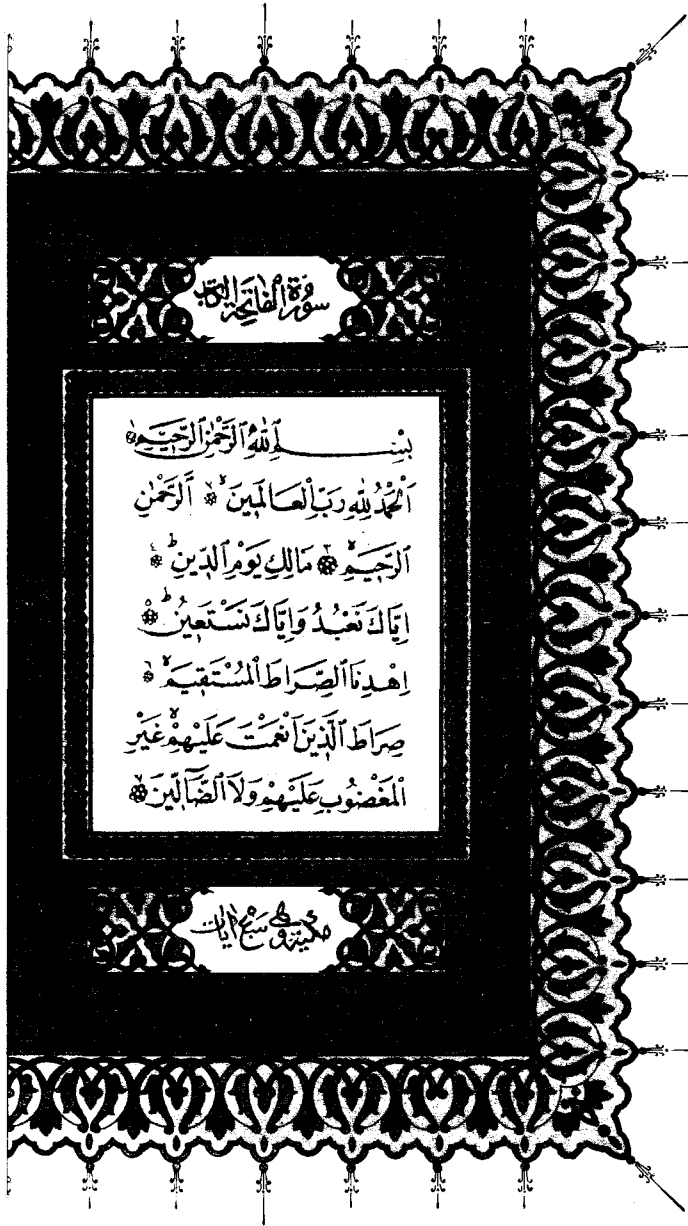 سُورَةُ الْفَاتِحَةِ
بِسْــــمِ ٱللّٰهِ ٱلرَّحْمٰنِ ٱلرَّحِيمِ
اَلْحَمْدُ لِلّٰهِ رَبِّ ٱلْعَالَمِينَۙ اَلرَّحْمٰنِ
ٱلرَّحِيمِۙ مَالِكِ يَوْمِ ٱلدِّينِۜ
اِيَّاكَ نَعْبُدُ وَاِيَّاكَ نَسْتَعِينُۜ
اِهْدِنَا ٱلصِّرَاطَ ٱلْمُسْتَقِيمَۙ
صِرَاطَ ٱلَّذِينَ اَنْعَمْتَ عَلَيْهِمْۙ غَيْرِ
ٱلْمَغْضُوبِ عَلَيْهِمْ وَلَا ٱلضَّٓالِّينَ
مكية وهي سبع آيات